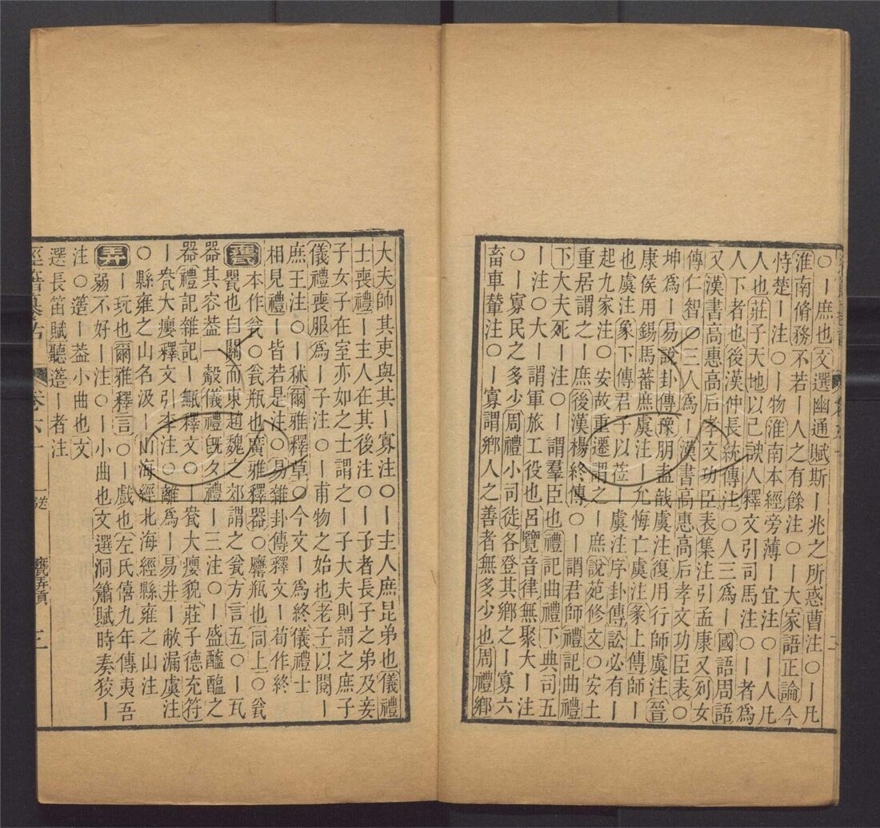 〇丨庶也文選幽通賦斯丨兆之所惑曹注〇丨凡
淮南脩務不若丨人之有餘注〇丨大家語正論今
恃楚丨注〇丨物淮南本經旁薄丨宜注〇丨人凡
人也莊子天地以己諛人釋文引司馬注〇丨者為
人下者也後漢仲長統傳注〇人三為丨國語周語
又漢書高惠高后孝文功臣表集注引孟康又列女
傳仁智〇三人為丨漢書高惠高后孝文功臣表〇
坤為丨易說卦傳豫朋盍戠虞注復用行師虞注晉
康侯用錫馬蕃庶虞注丨允悔亡虞注彖上傳師丨
也虞注象下傳君子以莅丨虞注序卦傳訟必有丨
起九家注〇安故重遷謂之丨庶說苑修文〇安土
重居謂之丨庶後漢楊終傳〇丨謂君師禮記曲禮
下大夫死丨注〇丨謂羣臣也禮記曲禮下典司五
丨注〇大丨謂軍旅工役也呂覽音律無聚大丨注
〇丨寡民之多少周禮小司徒各登其鄉之丨寡六
畜車輦注〇丨寡謂鄉人之善者無多少也周禮鄉
大夫帥其吏與其丨寡注〇丨主人庶昆弟也儀禮
士喪禮丨主人在其後注〇丨子者長子之弟及妾
子女子在室亦如之士謂之丨子大夫則謂之庶子
儀禮喪服為丨子注〇丨甫物之始也老子以閱丨
庶王注〇丨秫爾雅釋草〇今文丨為終儀禮士
相見禮丨皆若是注〇易雜卦傳釋文丨荀作終
甕本作瓮〇瓮瓶也廣雅釋器〇罋瓶也同上〇瓮
甖也自關而東趙魏之郊謂之瓮方言五〇丨瓦
器其容葢一觳儀禮既夕禮丨三注〇丨盛醯醢之
器禮記雜記丨甒釋文〇丨㼜大癭貌莊子德充符
丨㼜大癭釋文引李注〇離為丨易井丨敝漏虞注
〇縣雍之山名汲丨山海經北海經縣雍之山注
弄丨玩也爾雅釋言〇丨戲也左氏僖九年傳夷吾
弱不好丨注〇丨小曲也文選洞簫賦時奏狡丨
注〇簉丨葢小曲也文
選長笛賦聽簉丨者注
經籍籑詁 卷六十一送 甕弄 三